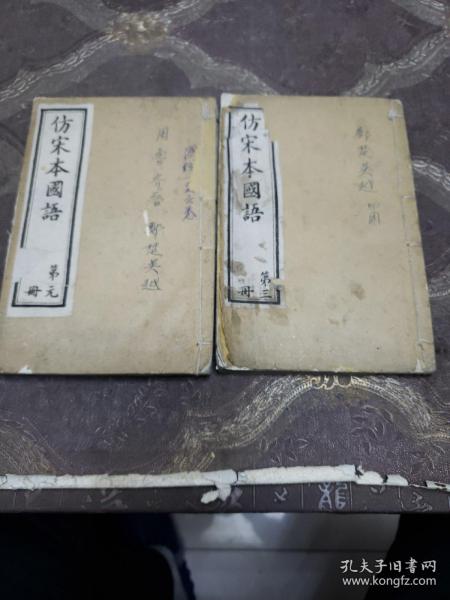 仿宋本國語
第元冊
周魯齊晉鄭楚吳越
仿宋本國語
第三冊
鄭楚吳越
龍
孔夫子旧书网
www.kongfz.com